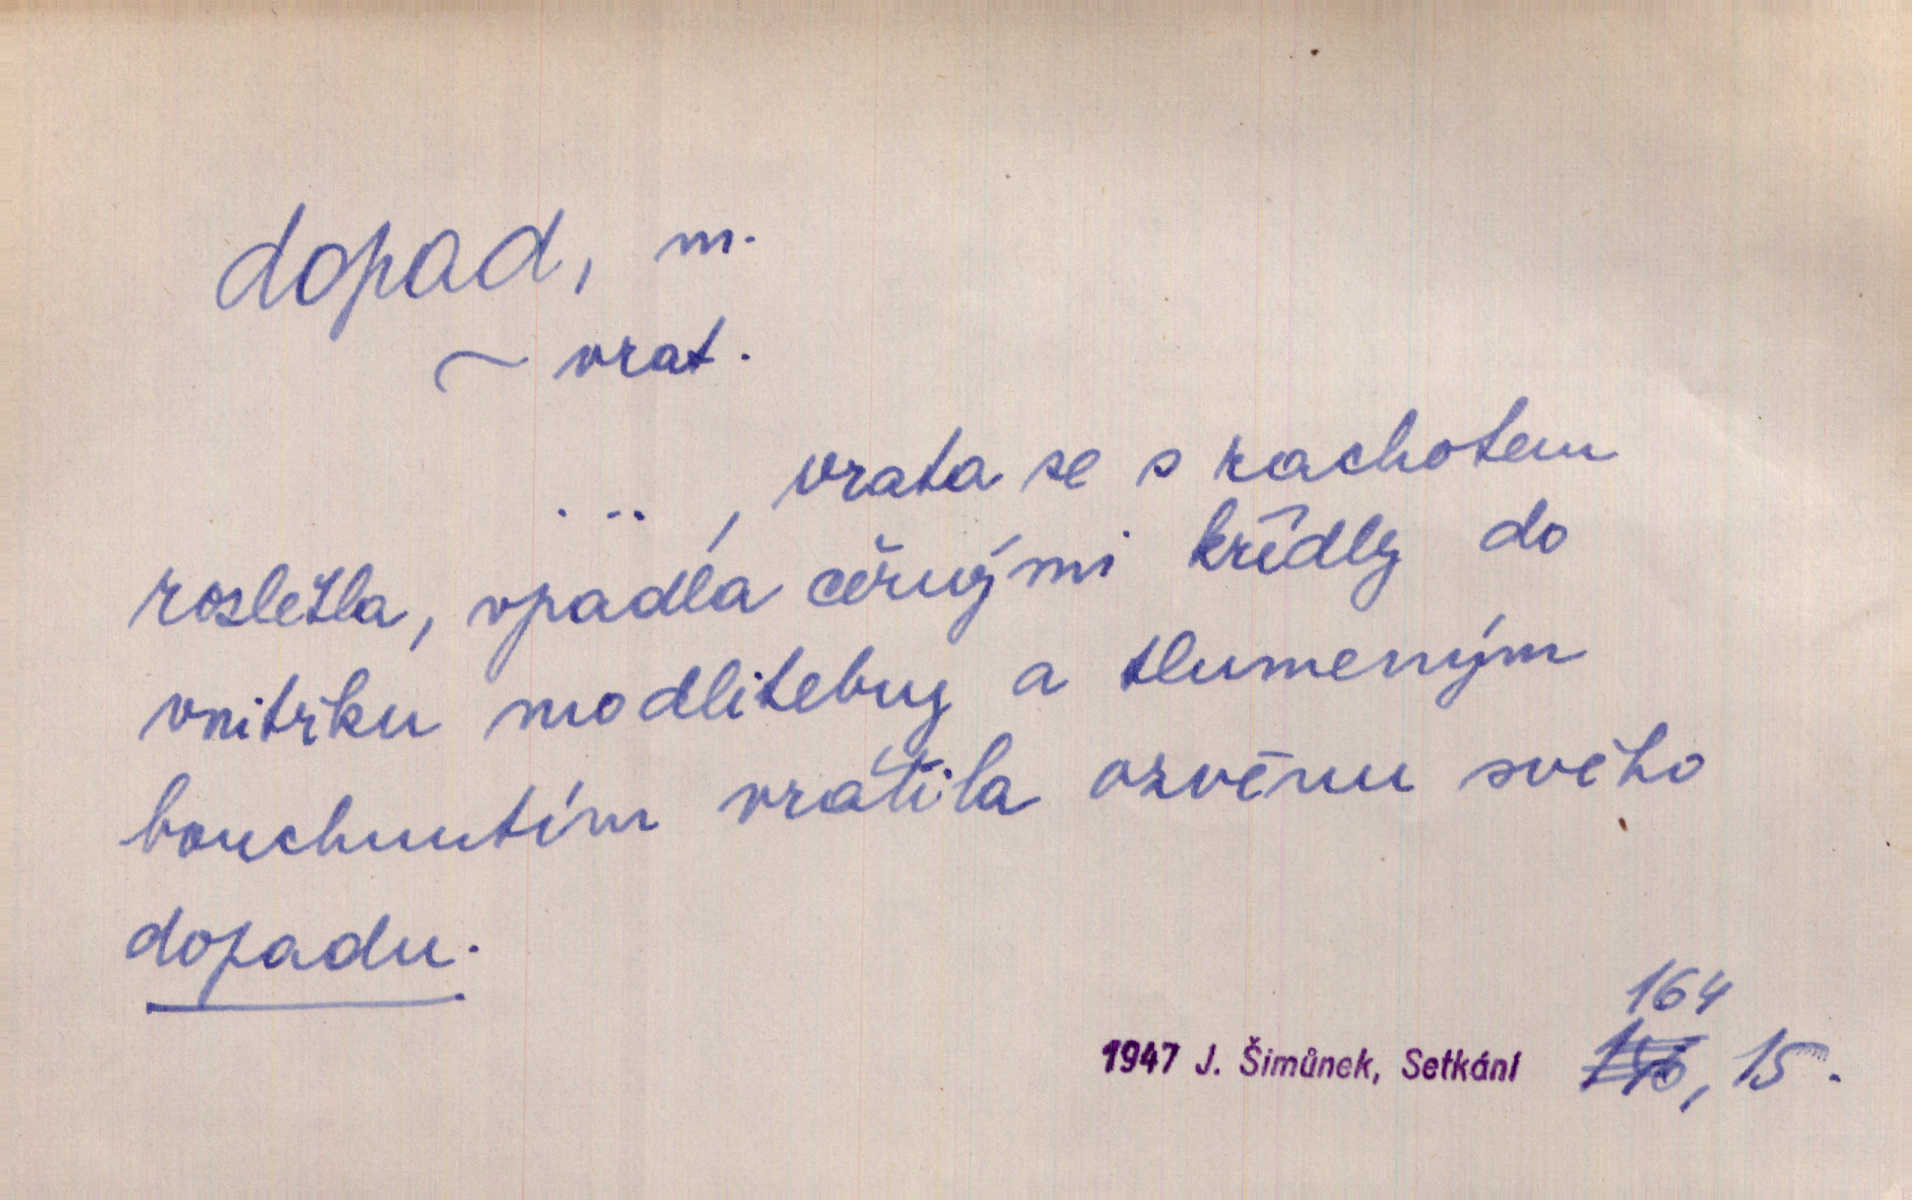 dopad, m.
~ vrat.
... , vrata se s rachotem
rozletla, vpadla černými křídly do
vnitřku modlitebny a tlumeným
bouchnutím vrátila ozvěnu svého
dopadu.
164
1947 J. Šimůnek, Setkání , 15.